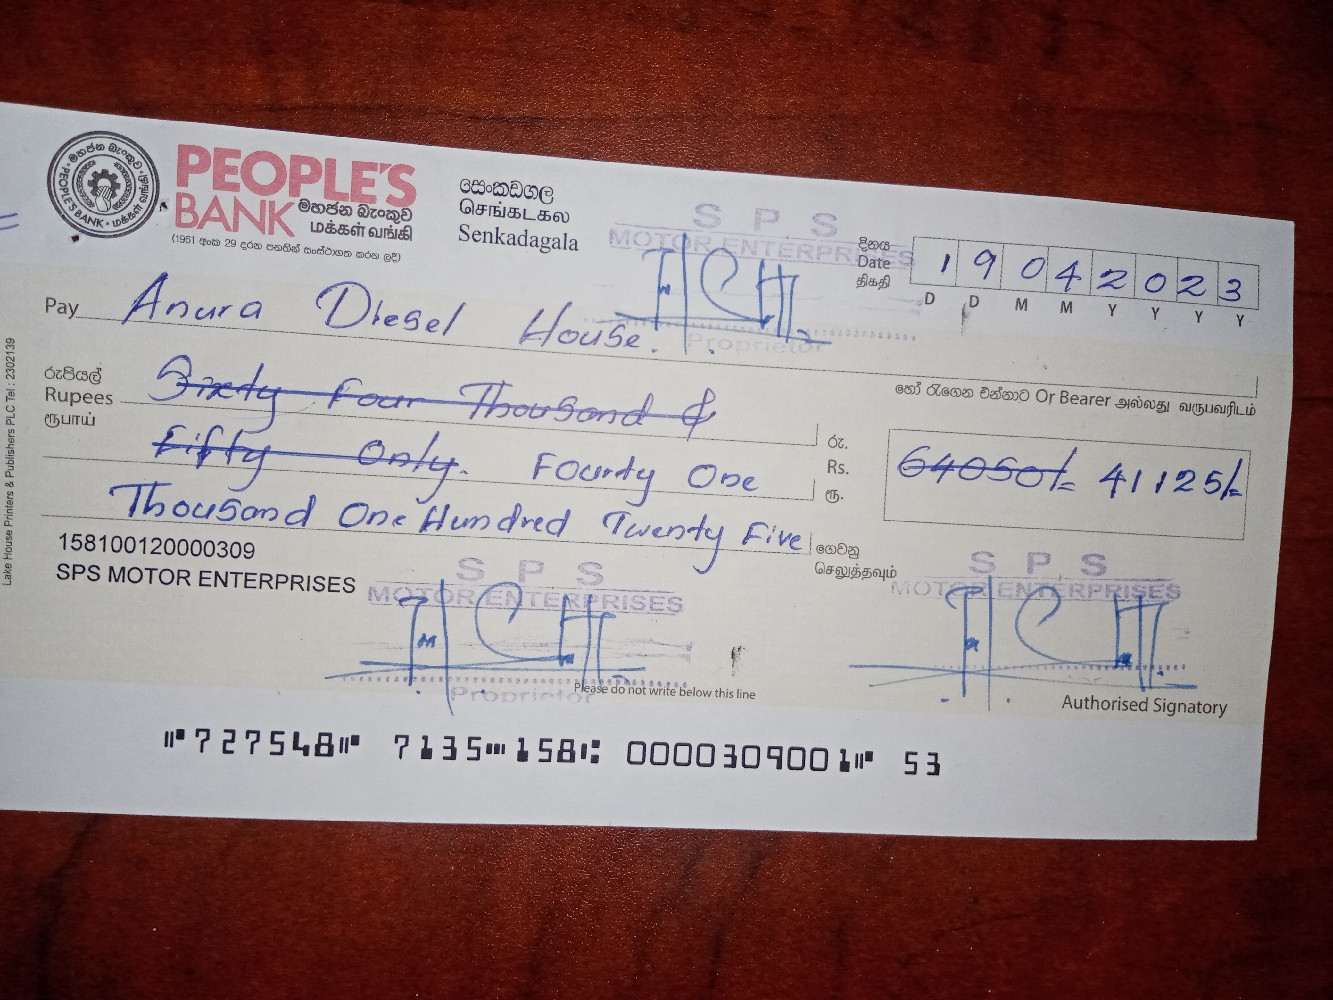 මහජන බැංකුව • மக்கள் வங்கி • PEOPLE'S BANK
PEOPLE'S
BANK මහජන බැංකුව
மக்கள் வங்கி
(1961 අංක 29 දරන පනතින් සංස්ථාගත කරන ලදී)
සෙංකඩගල
செங்கடகல
Senkadagala
S P S
MOTOR ENTERPRISES
Proprietor
දිනය
Date
திகதி
1 9 0 4 2 0 2 3
D D M M Y Y Y Y
Pay Anura Diesel House.
හෝ රැගෙන එන්නාට Or Bearer அல்லது வருபவரிடம்
රුපියල්
Rupees
ரூபாய்
Sixty Four Thousand &
Fifty Only. Fourty One
Thousand One Hundred Twenty Five
රු.
Rs.
ரூ.
64050/= 41125/=
ගෙවනු
செலுத்தவும்
158100120000309
SPS MOTOR ENTERPRISES
S P S
MOTOR ENTERPRISES
Proprietor
S P S
MOTOR ENTERPRISES
Please do not write below this line
Authorised Signatory
⑈727548⑈ 7135⑉158⑆ 0000309001⑈ 53
Lake House Printers & Publishers PLC Tel : 2302139